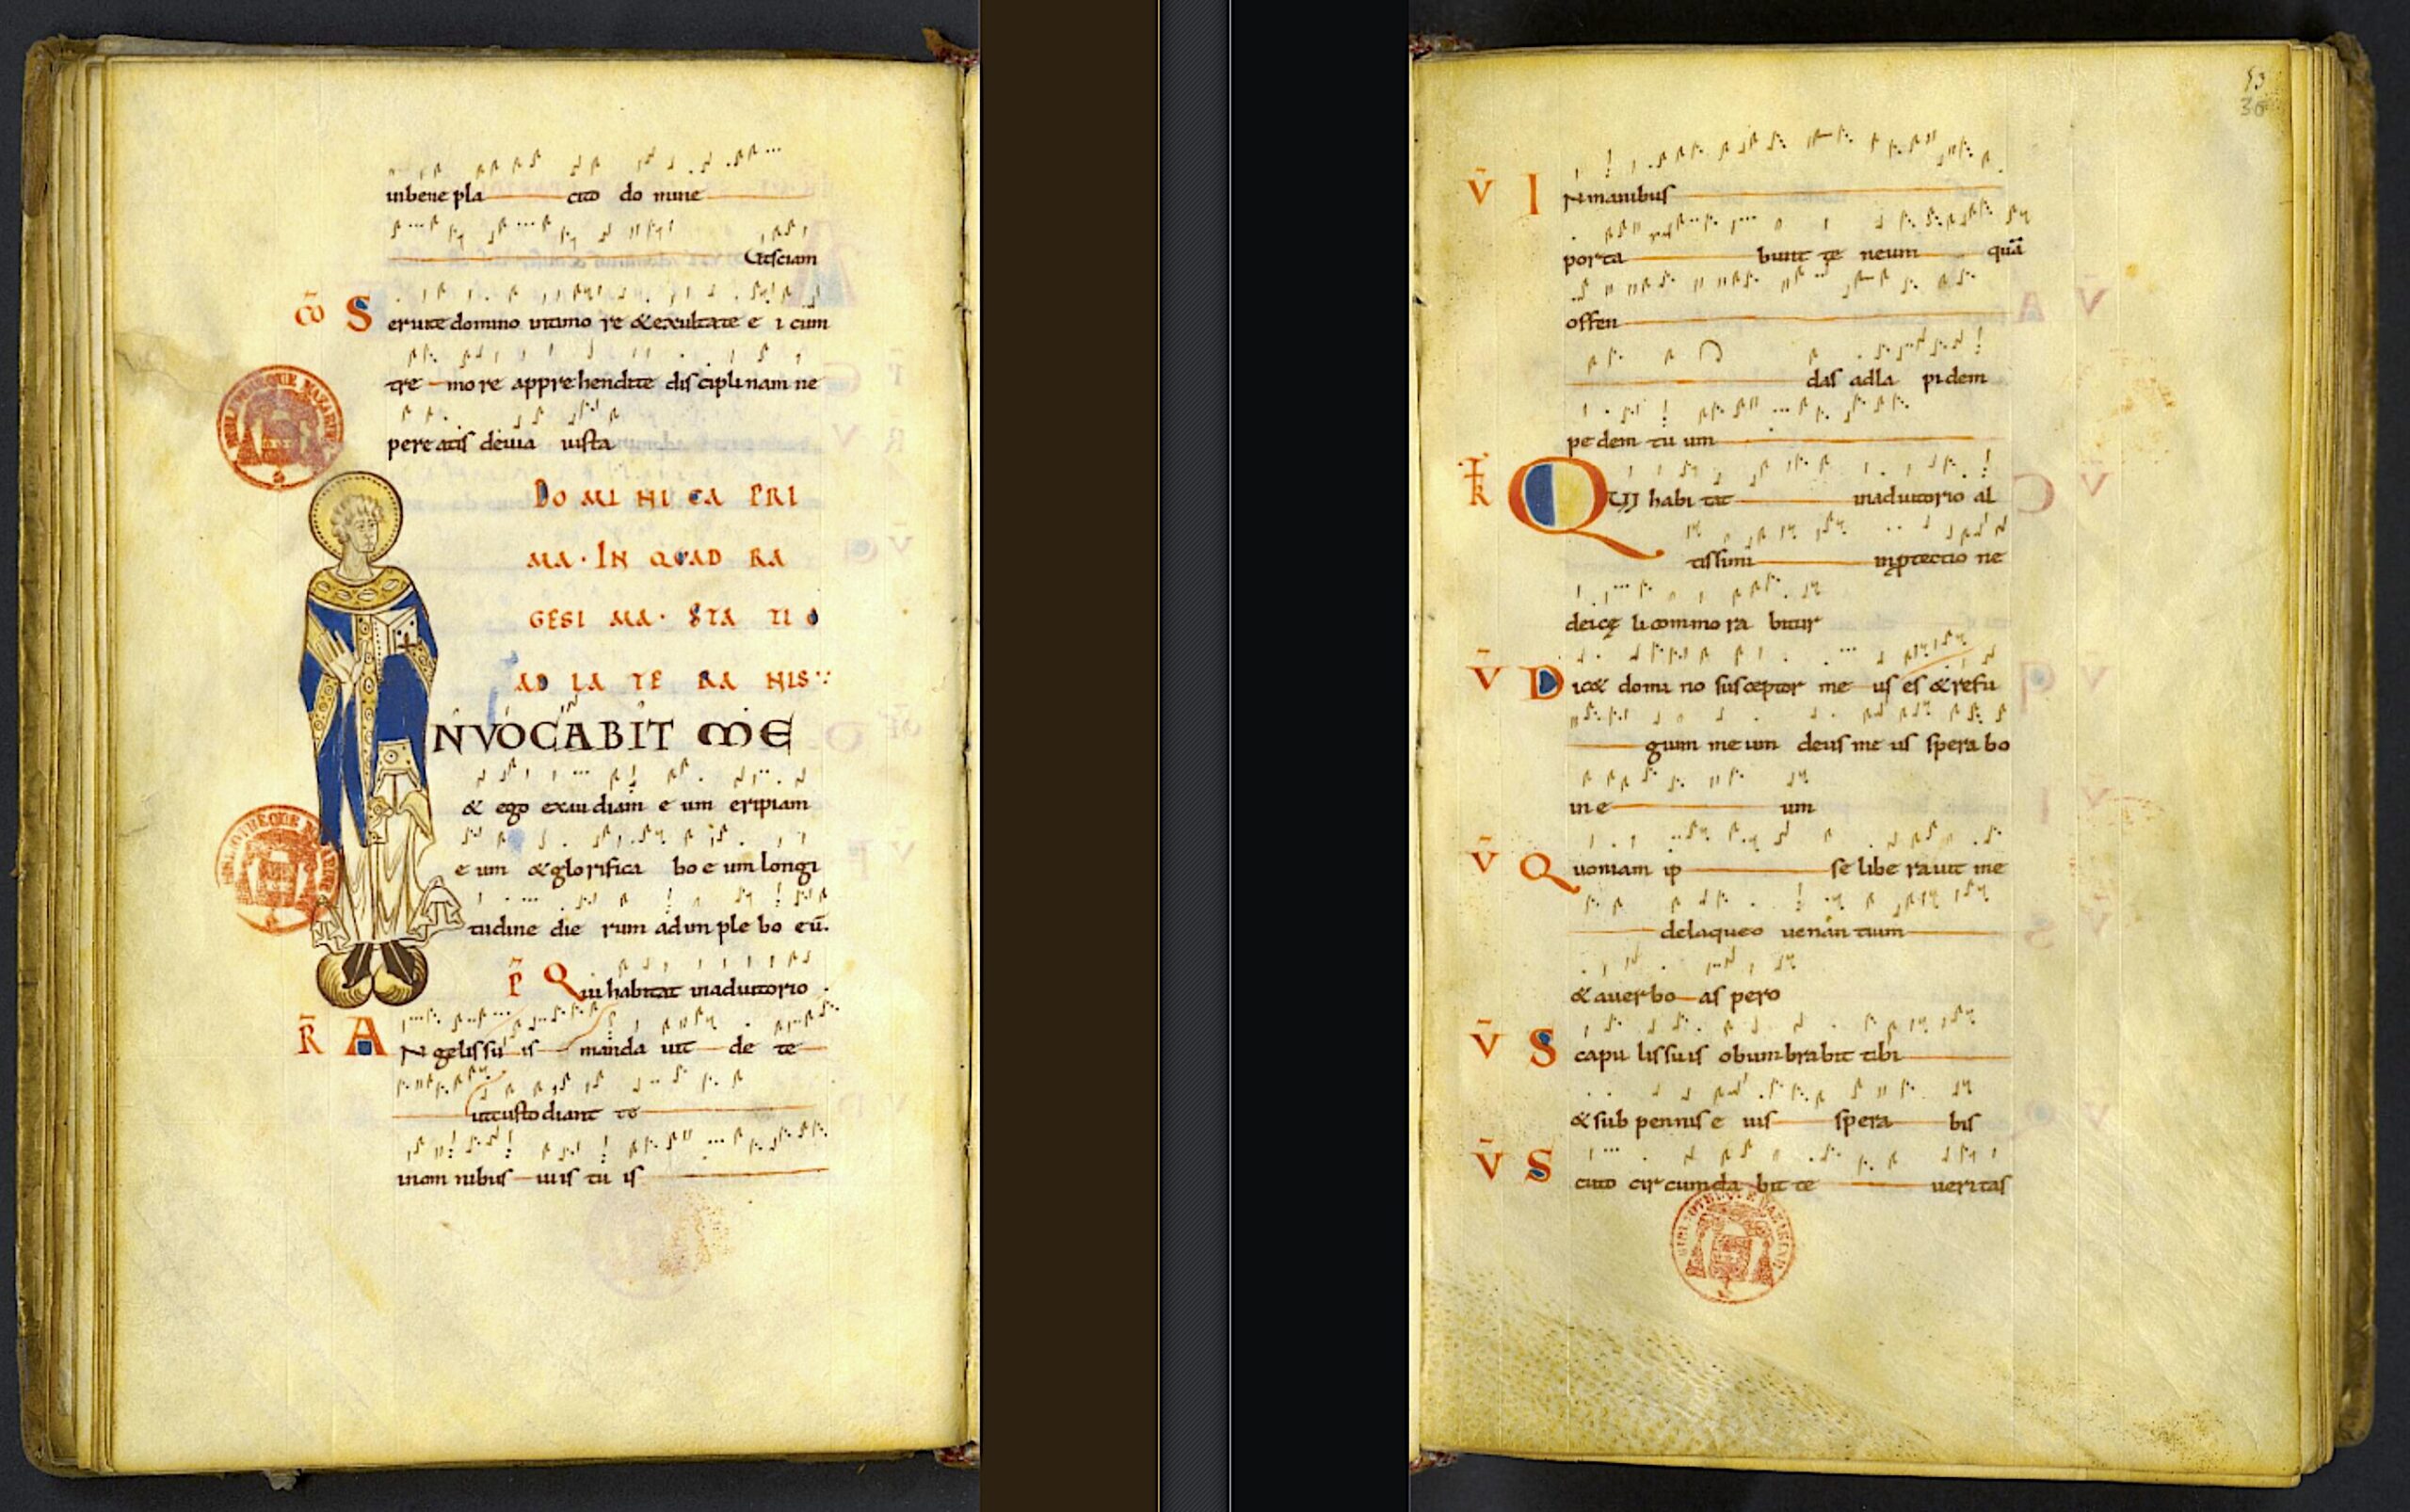 inbene pla cito do mine
Cusciam
CO Seruite domino intimo re &exultate e i cum
tre more apprehendite disciplinam ne
pereatis deuia iusta
DO MI NI CA PRI
MA · IN QUAD RA
GESI MA · STA TI O
AD LA TE RA NIS
NVOCABIT ME
& ego exau diam e um eripiam
e um &glorifica bo e um longi
tudine die rum adim ple bo eū.
P Qui habitat inadiutorio
R ANgelissu is manda uit de te
utcusto diant te
inom nibus uiis tu is
53
36
V INmanibus
porta bunt te neum quā
offen
das adla pidem
pe dem tu um
TR QUI habi tat inadiutorio al
tissimi inptectio ne
dei cę li commo ra bitur
V Dic& domi no susceptor me us es &refu
gium me um deus me us spera bo
in e um
V Quoniam ip se libe rauit me
delaqueo uenan tium
&auerbo as pero
V Scapu lissuis obumbrabit tibi
&sub pennis e ius spera bis
V Scuto circumda bit te ueritas
BIBLIOTHEQUE MAZARINE